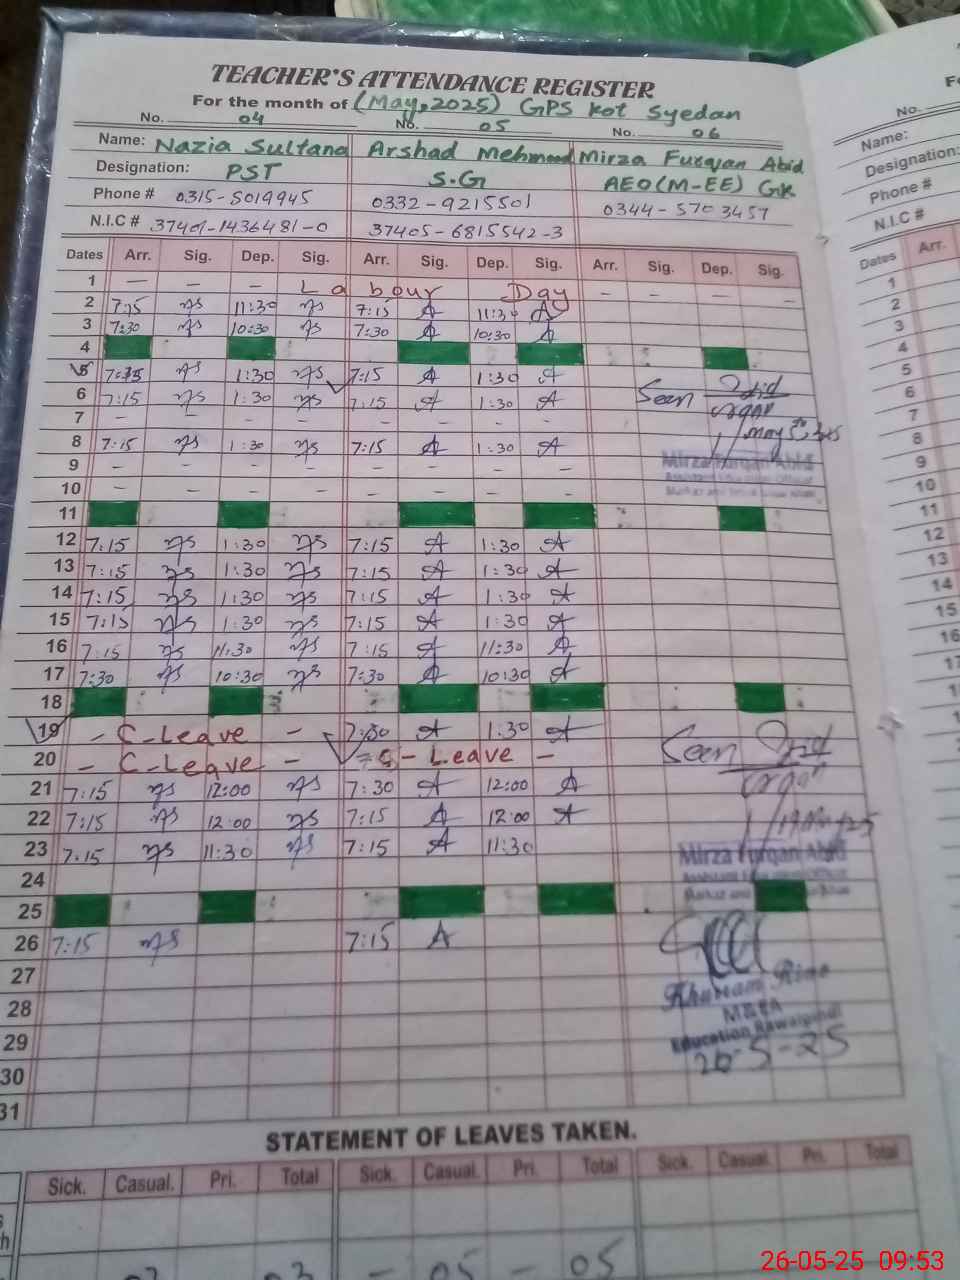 TEACHER'S ATTENDANCE REGISTER
For the month of (May, 2025) GPS Kot Syedan
No. 04 No. 05 No. 06
Name: Nazia Sultana Arshad Mehmood Mirza Furqan Abid
Designation: PST S.G AEO (M-EE) GK
Phone # 0315-5019945 0332-9215501 0344-5703457
N.I.C # 37401-1436481-0 37405-6815542-3
Dates Arr. Sig. Dep. Sig. Arr. Sig. Dep. Sig. Arr. Sig. Dep. Sig.
1 — — — Labour Day — — — —
2 7:15 ns 11:30 ns 7:15 A 11:30 A
3 7:30 ns 10:30 ns 7:30 A 10:30 A
4
5 7:15 ns 1:30 ns 7:15 A 1:30 A
6 7:15 ns 1:30 ns 7:15 A 1:30 A Seen
7 – – – – – – – –
8 7:15 ns 1:30 ns 7:15 A 1:30 A
9 – – – – – – – –
Mirza Furqan Abid
Assistant Education Officer
10 – – – – – – – –
11
12 7:15 ns 1:30 ns 7:15 A 1:30 A
13 7:15 ns 1:30 ns 7:15 A 1:30 A
14 7:15 ns 1:30 ns 7:15 A 1:30 A
15 7:15 ns 1:30 ns 7:15 A 1:30 A
16 7:15 ns 11:30 ns 7:15 A 11:30 A
17 7:30 ns 10:30 ns 7:30 A 10:30 A
18
19 – C-Leave – 7:30 A 1:30 A Seen
20 – C-Leave – – Leave –
21 7:15 ns 12:00 ns 7:30 A 12:00 A
22 7:15 ns 12:00 ns 7:15 A 12:00 A
23 7:15 ns 11:30 ns 7:15 A 11:30
Mirza Furqan Abid
Assistant Education Officer
24
25
26 7:15 ns 7:15 A
27
M&EA
28
Education Rawalpindi
29
26-5-25
30
31
STATEMENT OF LEAVES TAKEN.
Sick. Casual. Pri. Total Sick. Casual. Pri. Total Sick. Casual. Pri. Total
03 03 – 05 – 05
F
No.
Name:
Designation:
Phone #
N.I.C #
Dates Arr.
1
2
3
4
5
6
7
8
9
10
11
12
13
14
15
16
26-05-25 09:53